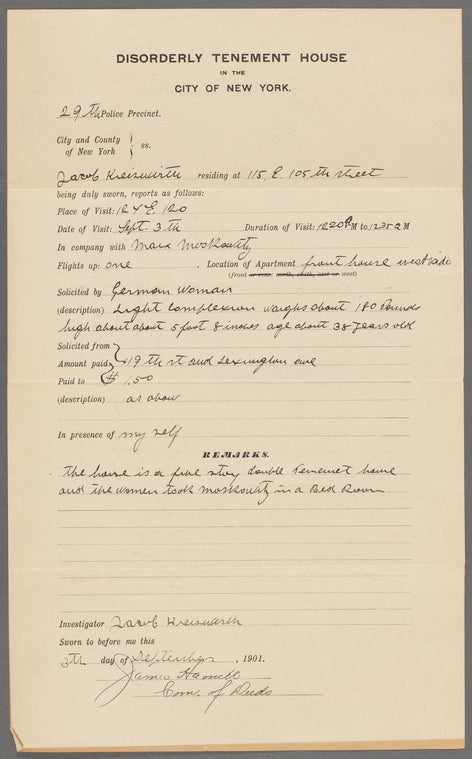 DISORDERLY TENEMENT HOUSE
IN THE
CITY OF NEW YORK.
29th Police Precinct.
City and County
of New York } ss.
Jacob Kreiswirth residing at 115 E. 105th street
being duly sworn, reports as follows:
Place of Visit: 124 E. 120
Date of Visit: Sept. 3th Duration of Visit: 1220 A M to 1235 A M
In company with Max Moskowitz
Flights up: one . Location of Apartment front house west side
(front or rear, north, south, east or west)
Solicited by German Woman
(description) Light Complexion waighs about 180 Pounds
high about about 5 foot 8 inches age about 38 years old
Solicited from
Amount paid 119th st and Lexington ave
Paid to $ 1.50
(description) as above
In presence of my self
REMARKS.
the house is a five story double Tenemet house
and the women took moskowitz in a Bed Room
Investigator Jacob Kreiswirth
Sworn to before me this
3th day of September , 1901.
James Hamill
Com. of Deeds